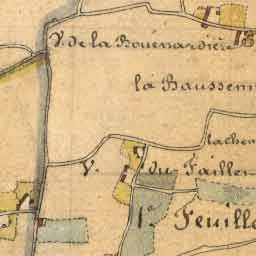 V. de la Bouënardière
la Baussenn
lachen
V. du Failler
1re Feuille